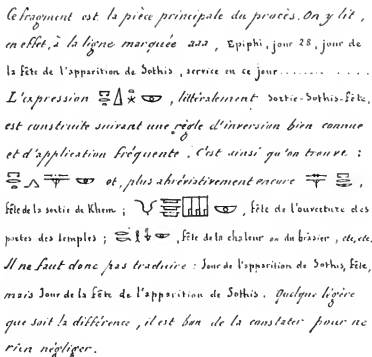 Ce fragment est la pièce principale du procès. On y lit,
en effet, à la ligne marquée aaa, Epiphi, jour 28, jour de
la fête de l'apparition de Sothis, service en ce jour........ . . . .
L'expression , littéralement Sortie-Sothis-fête,
est construite suivant une règle d'inversion bien connue
et d'application fréquente. C'est ainsi qu'on trouve :
et, plus abréviativement encore ,
fête de la sortie de Khem ; , fête de l'ouverture des
portes des temples ; , fête de la chaleur ou du brasier, etc, etc.
Il ne faut donc pas traduire : Jour de l'apparition de Sothis, fête,
mais Jour de la fête de l'apparition de Sothis. Quelque légère
que soit la différence, il est bon de la constater pour ne
rien négliger.